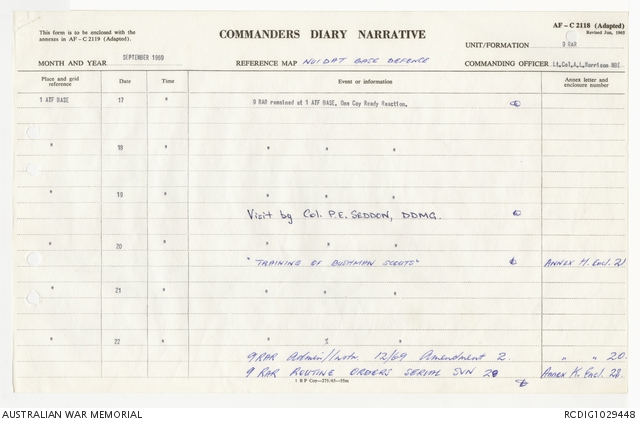 AF – C 2118 (Adapted)
Revised Jun, 1965
This form is to be enclosed with the
annexes in AF – C 2119 (Adapted).
COMMANDERS DIARY NARRATIVE
UNIT/FORMATION 9 RAR
MONTH AND YEAR SEPTEMBER 1969
REFERENCE MAP NUI DAT BASE DEFENCE
COMMANDING OFFICER Lt.Col.A.L.Morrison MBE
Place and grid reference
Date
Time
Event or information
Annex letter and enclosure number
1 ATF BASE 17 " 9 RAR remained at 1 ATF BASE. One Coy Ready Reaction.
" 18 " " " "
" 19 " " " "
Visit by Col. P.E. SEDDON, DDMG.
" 20 " " " "
"TRAINING OF BUSHMAN SCOUTS" ANNEX H. Encl. 21
" 21 " " " "
" 22 " " "
9 RAR Admin/Instr. 12/69 Amendment 2. " " 20.
9 RAR ROUTINE ORDERS SERIAL SVN 28 Annex K. Encl. 28.
1 B P Coy—275/65—55m
AUSTRALIAN WAR MEMORIAL
RCDIG1029448